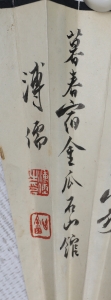 暮春宿金瓜石山館
溥儒